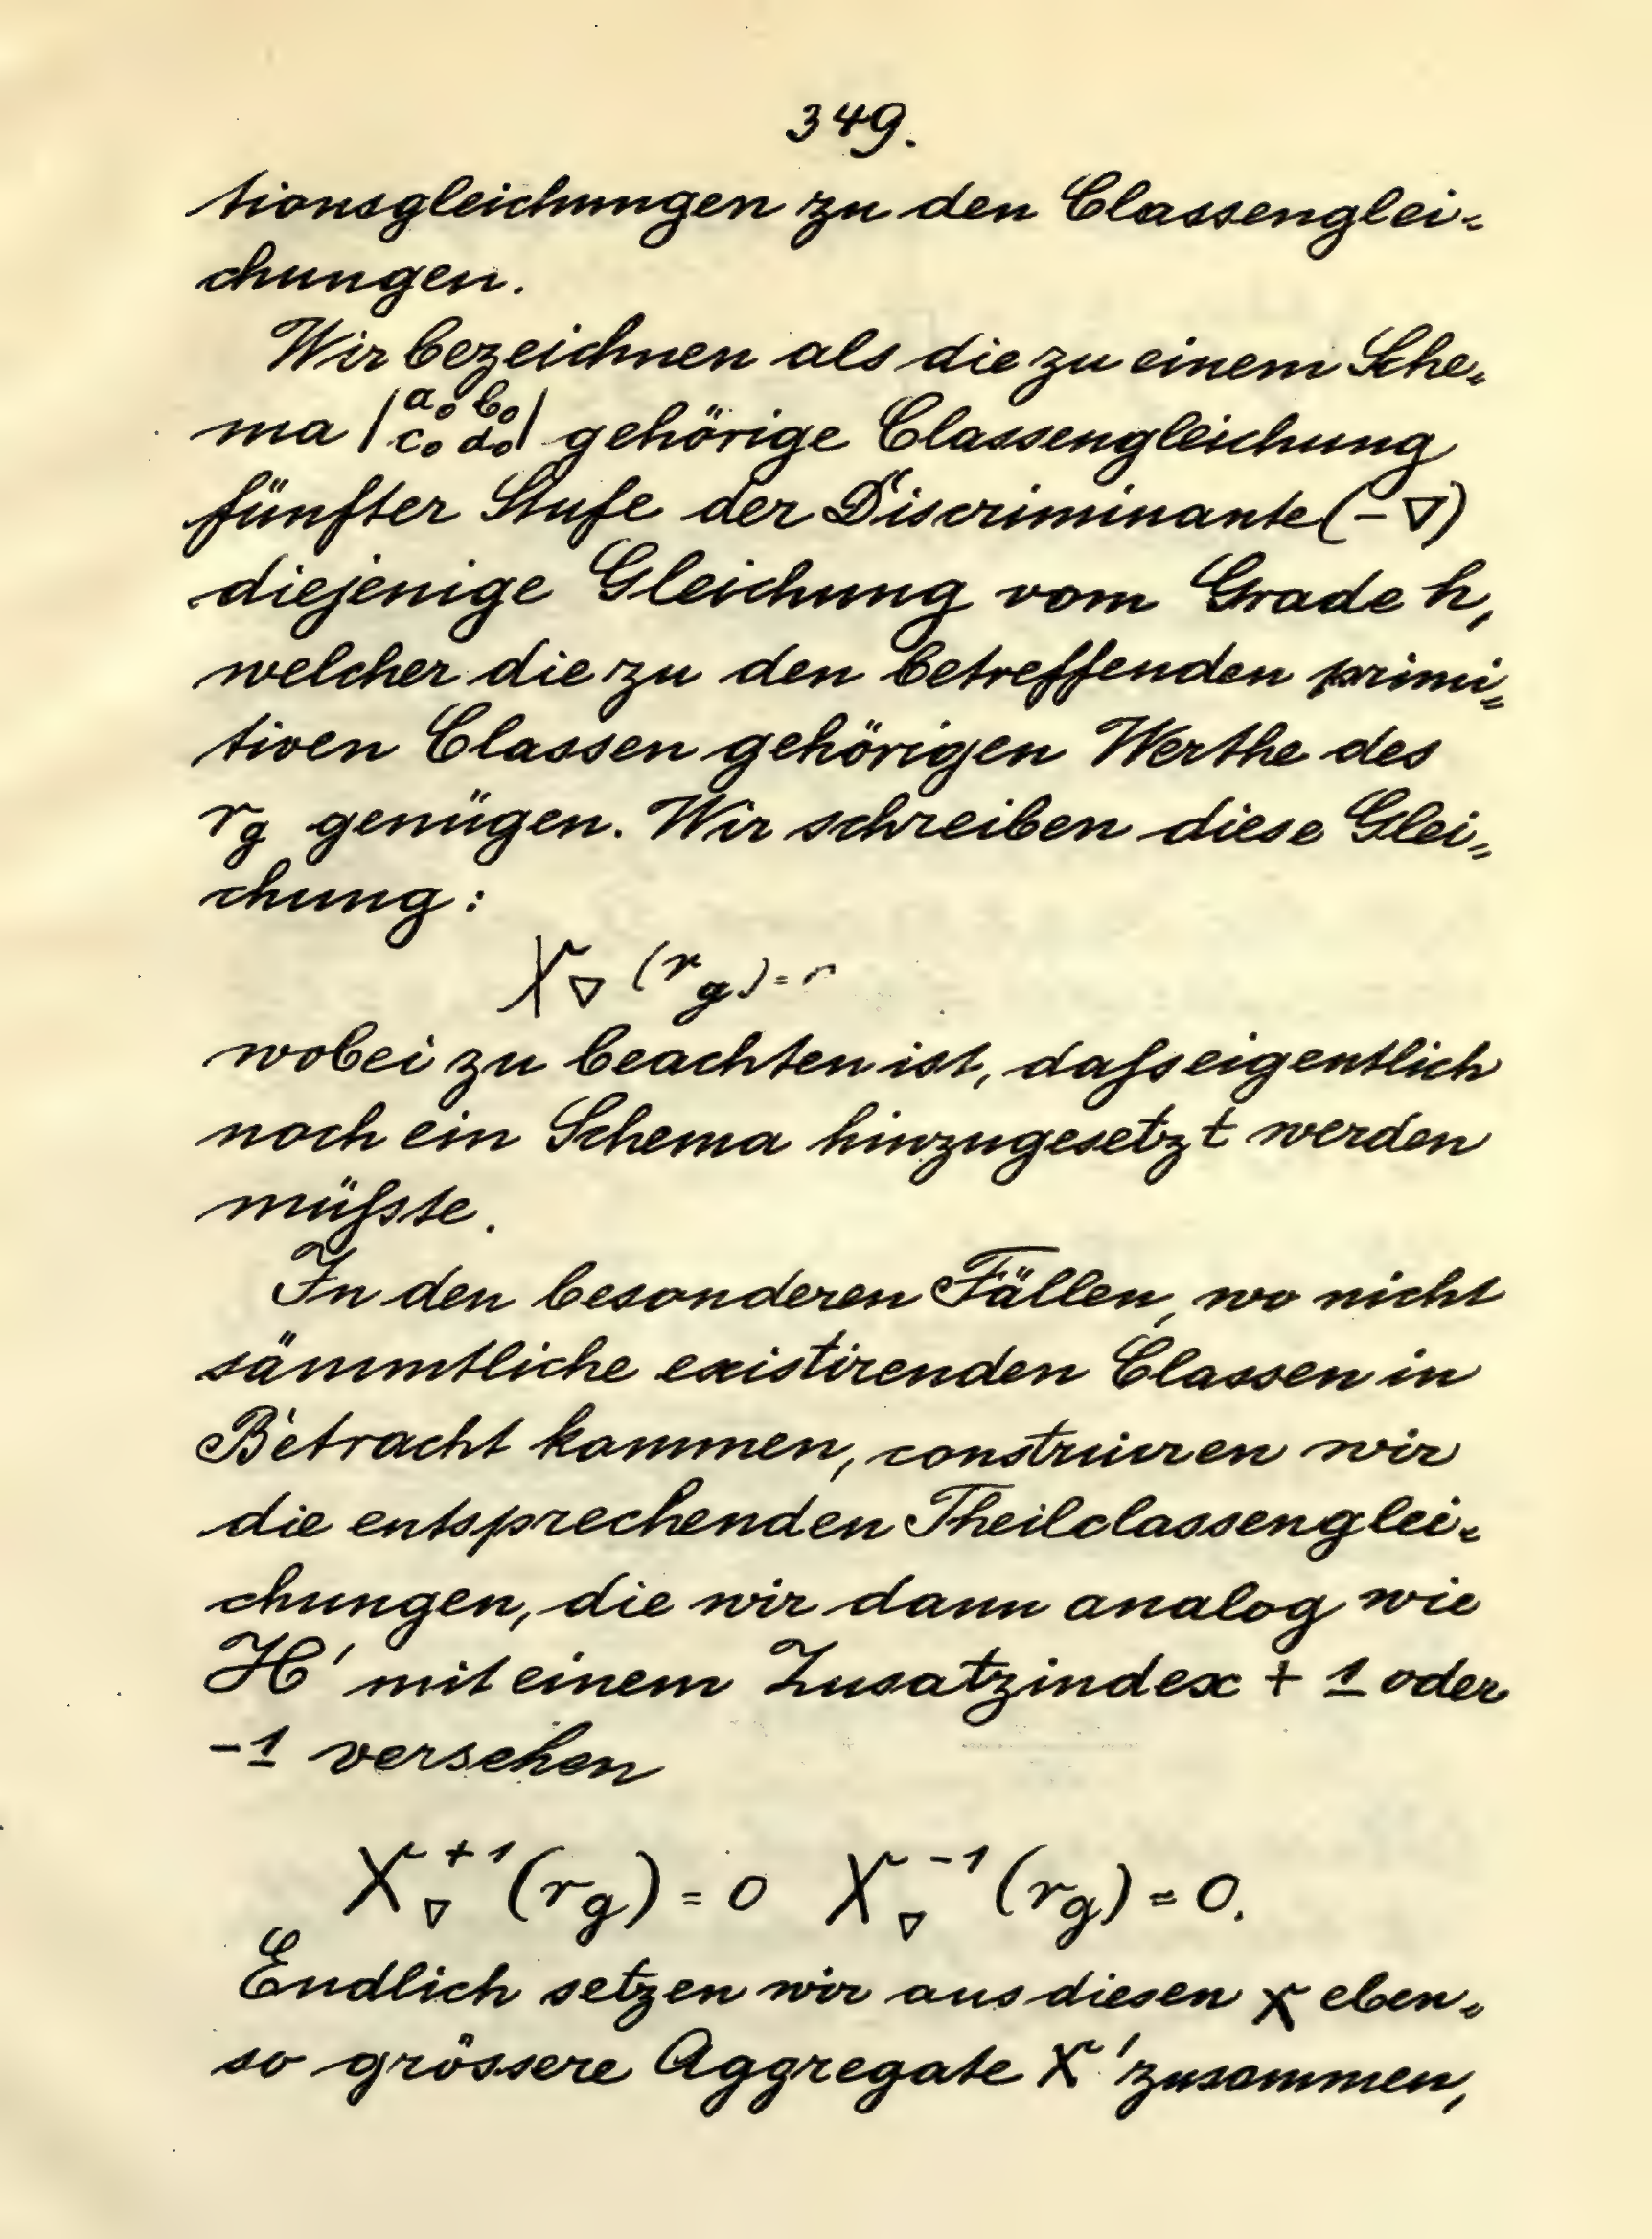 349.
tionsgleichungen zu den Classenglei-
chungen.
Wir bezeichnen als die zu einem Sche-
ma |a₀ b₀ c₀ d₀| gehörige Classengleichung
fünfter Stufe der Discriminante (-∇)
diejenige Gleichung vom Grade h,
welcher die zu den betreffenden primi-
tiven Classen gehörigen Werthe des
r_g genügen. Wir schreiben diese Glei-
chung:
X_∇ (r_g) =
wobei zu beachten ist, daſs eigentlich
noch ein Schema hinzugesetzt werden
müſste.
In den besonderen Fällen, wo nicht
sämmtliche existirenden Classen in
Betracht kommen, construiren wir
die entsprechenden Theilclassenglei-
chungen, die wir dann analog wie
H' mit einem Zusatzindex + 1 oder
-1 versehen
X_∇^{+1} (r_g) = 0 X_∇^{-1} (r_g) = 0.
Endlich setzen wir aus diesen X eben-
so grössere Aggregate X' zusammen,